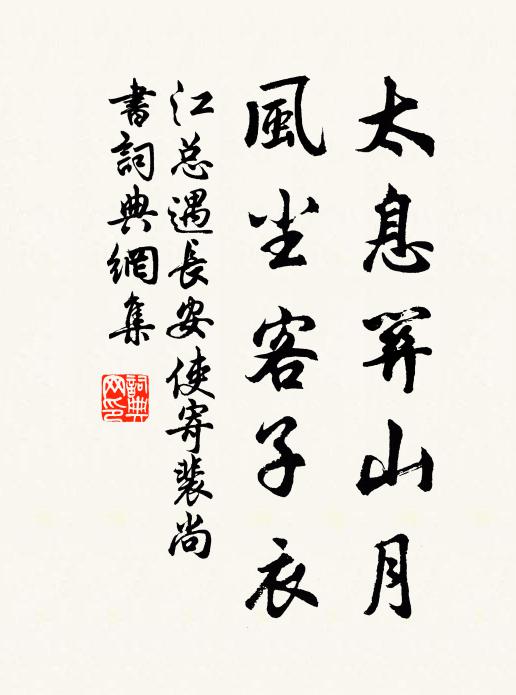 太息関山月
風尘客子衣
江总遇長安使寄裴尚
書詞典網集
詞典
网印